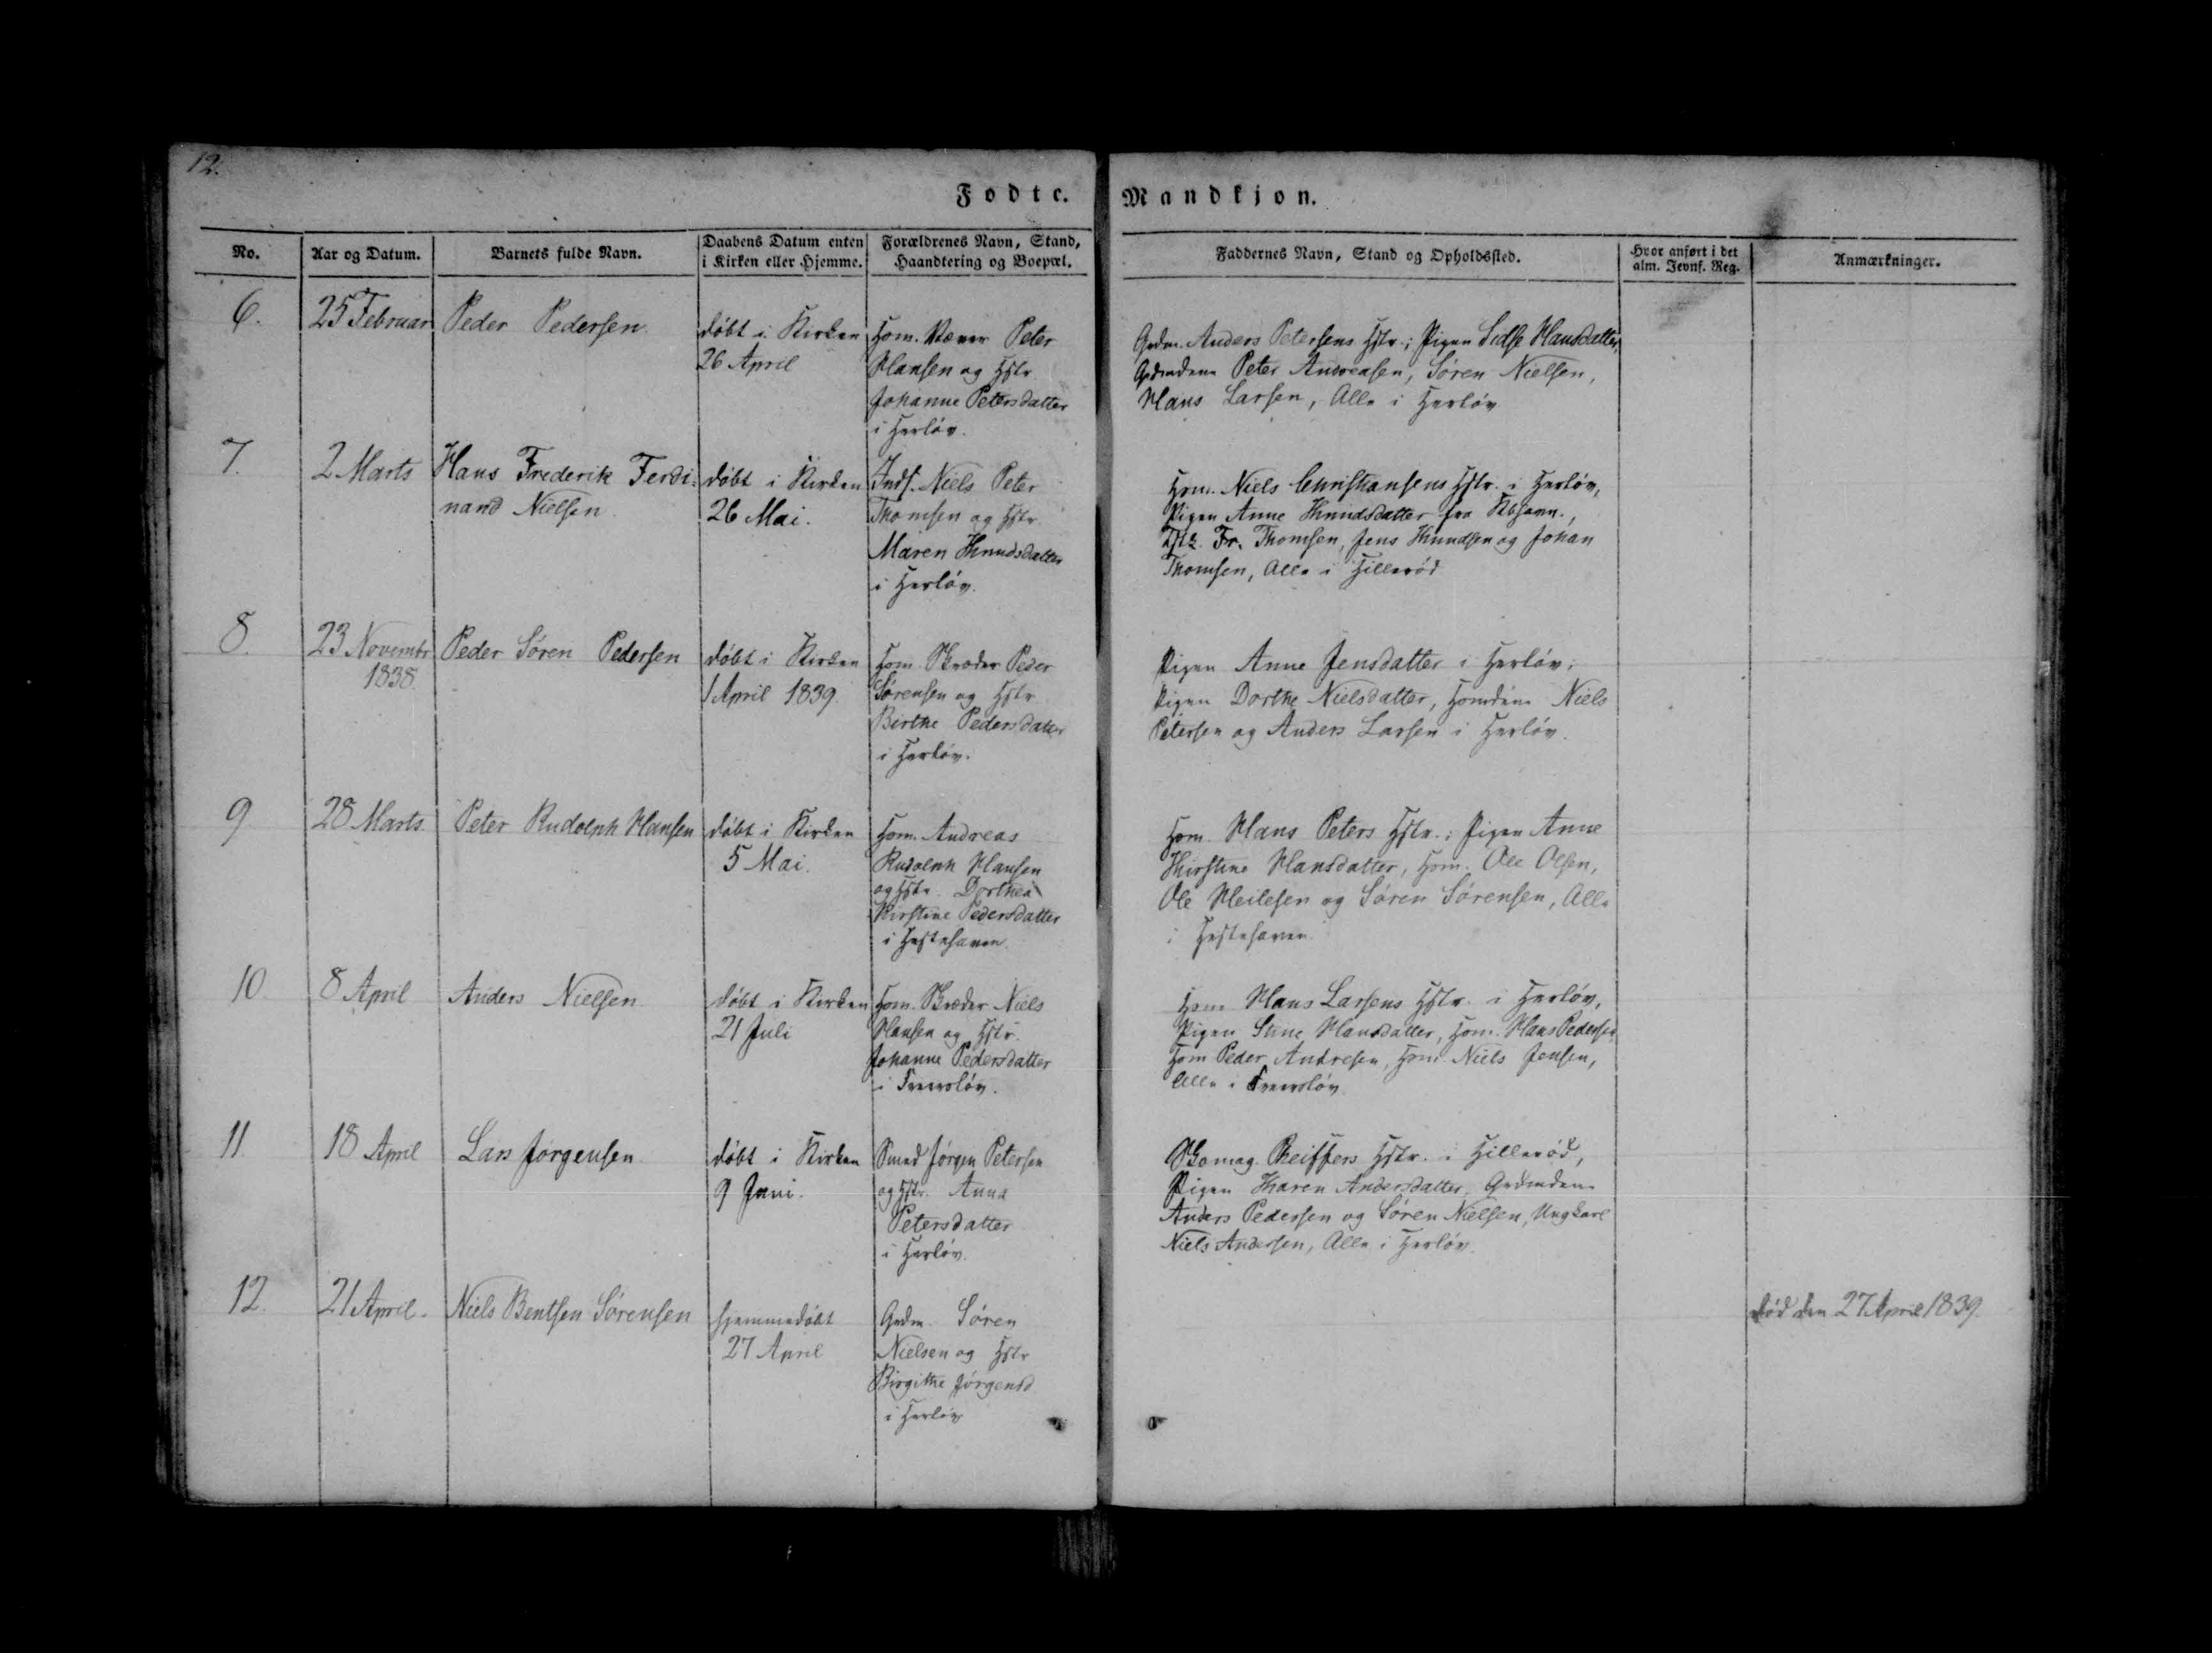 12.
Fødte. Mandkjøn.
No.
Aar og Datum.
Barnets fulde Navn.
Daabens Datum enten
i Kirken eller Hjemme.
Forældrenes Navn, Stand,
Haandtering og Boepæl.
Faddernes Navn, Stand og Opholdssted.
Hvor anført i det
alm. Jevnf. Reg.
Anmærkninger.
6.
25 Februar
Peder Pedersen
døbt i Kirken
26 April
Hom. Væver Peter
Hansen og Hstr
Johanne Petersdatter
i Herløv.
Grdm. Anders Petersens Hstr.; Pigen Sidse Hansdatter,
Grdmdene Peter Andreasen, Søren Nielsen,
Hans Larsen, Alle i Herløv
7.
2 Marts
Hans Frederik Ferdi-
nand Nielsen
døbt i Kirken
26 Mai.
Inds. Niels Peter
Thomsen og Hstr.
Maren Knudsdatter
i Herløv.
Hom. Niels Christiansens Hstr. i Herløv,
Pigen Anne Knudsdatter fra Kbhavn.,
Fr. Thomsen, Jens Knudsen og Johan
Thomsen, Alle i Hillerød
8.
23 Novembr
1838.
Peder Søren Pedersen
døbt i Kirken
1 April 1839.
Hom. Skræder Peder
Sørensen og Hstr.
Birthe Pedersdatter
i Herløv.
Pigen Anne Jensdatter i Herløv;
Pigen Dorthe Nielsdatter, Homdene Niels
Petersen og Anders Larsen i Herløv.
9
28 Marts.
Peter Rudolph Hansen
døbt i Kirken
5 Mai.
Hom. Andreas
Rudolph Hansen
og Hstr. Dorthea
Kirstine Pedersdatter
i Hestehaven
Hom. Hans Peters Hstr.; Pigen Anne
Kirstine Hansdatter, Hom. Ole Olsen,
Ole Heilesen og Søren Sørensen, Alle
i Hestehaven.
10
8 April
Anders Nielsen
døbt i Kirken
21 Juli
Hom. Skræder Niels
Hansen og Hstr.
Johanne Pedersdatter
i Freersløv.
Hom Hans Larsens Hstr. i Herløv,
Pigen Stine Hansdatter, Hom. Hans Pedersen
Hom Peder Andresen, Hom. Niels Jensen,
Alle i Freersløv
11.
18 April
Lars Jørgensen
døbt i Kirken
9 Juni.
Smed Jørgen Petersen
og Hstr. Anna
Petersdatter
i Herløv.
Skomag. Reiffers Hstr. i Hillerød,
Pigen Karen Andersdatter, Grdmdene
Anders Pedersen og Søren Nielsen, Ungkarl
Niels Andersen, Alle i Herløv.
12.
21 April.
Niels Bentsen Sørensen
hjemmedøbt
27 April
Grdm. Søren
Nielsen og Hstr
Birgithe Jørgensd.
i Herløv
død den 27 April 1839.